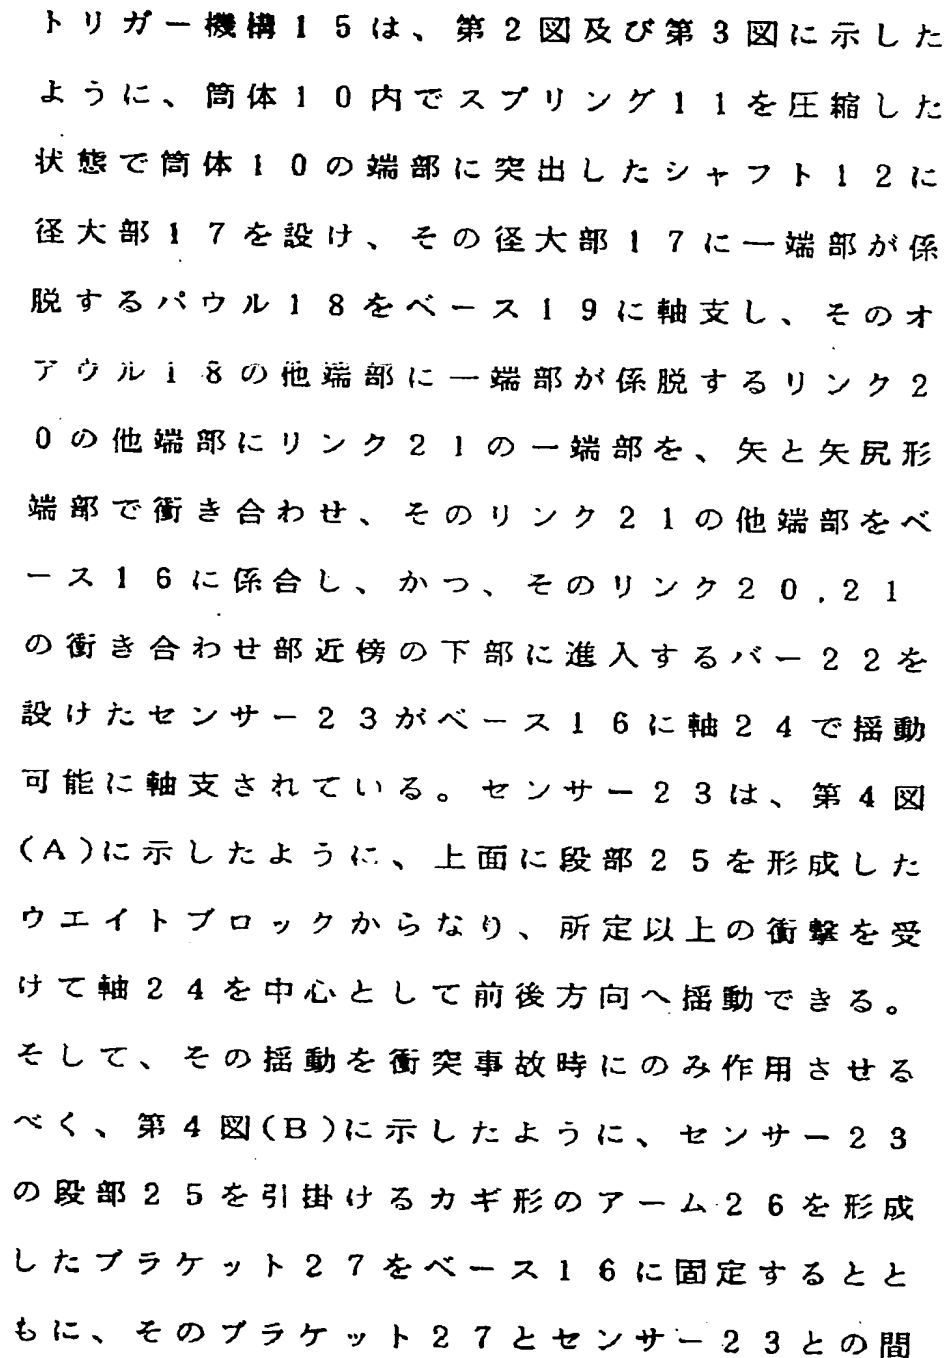 トリガー機構15は、第2図及び第3図に示した
ように、筒体10内でスプリング11を圧縮した
状態で筒体10の端部に突出したシャフト12に
径大部17を設け、その径大部17に一端部が係
脱するパウル18をベース19に軸支し、そのオ
アウル18の他端部に一端部が係脱するリンク2
0の他端部にリンク21の一端部を、矢と矢尻形
端部で衝き合わせ、そのリンク21の他端部をベ
ース16に係合し、かつ、そのリンク20,21
の衝き合わせ部近傍の下部に進入するバー22を
設けたセンサー23がベース16に軸24で揺動
可能に軸支されている。センサー23は、第4図
(A)に示したように、上面に段部25を形成した
ウエイトブロックからなり、所定以上の衝撃を受
けて軸24を中心として前後方向へ揺動できる。
そして、その揺動を衝突事故時にのみ作用させる
べく、第4図(B)に示したように、センサー23
の段部25を引掛けるカギ形のアーム26を形成
したブラケット27をベース16に固定するとと
もに、そのブラケット27とセンサー23との間